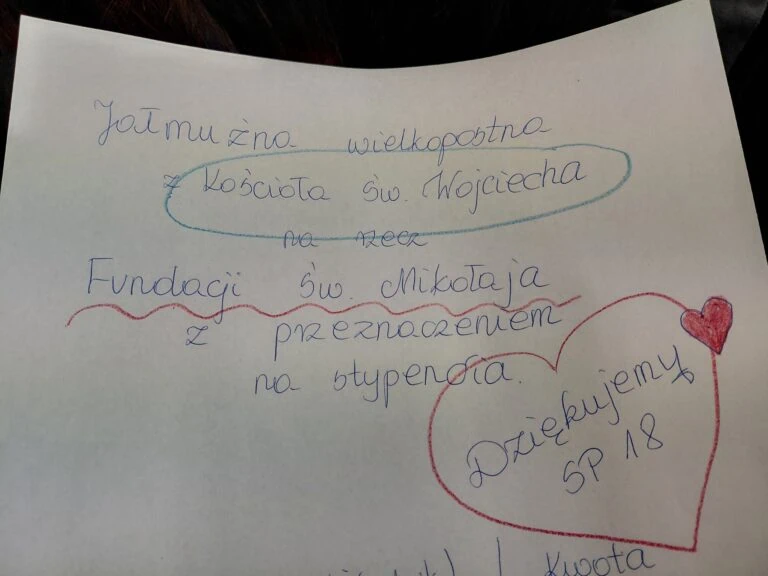 Jałmużna wielkopostna
z Kościoła św. Wojciecha
na rzecz
Fundacji św. Mikołaja
z przeznaczeniem
na stypendia.
Dziękujemy
SP 18
Kwota